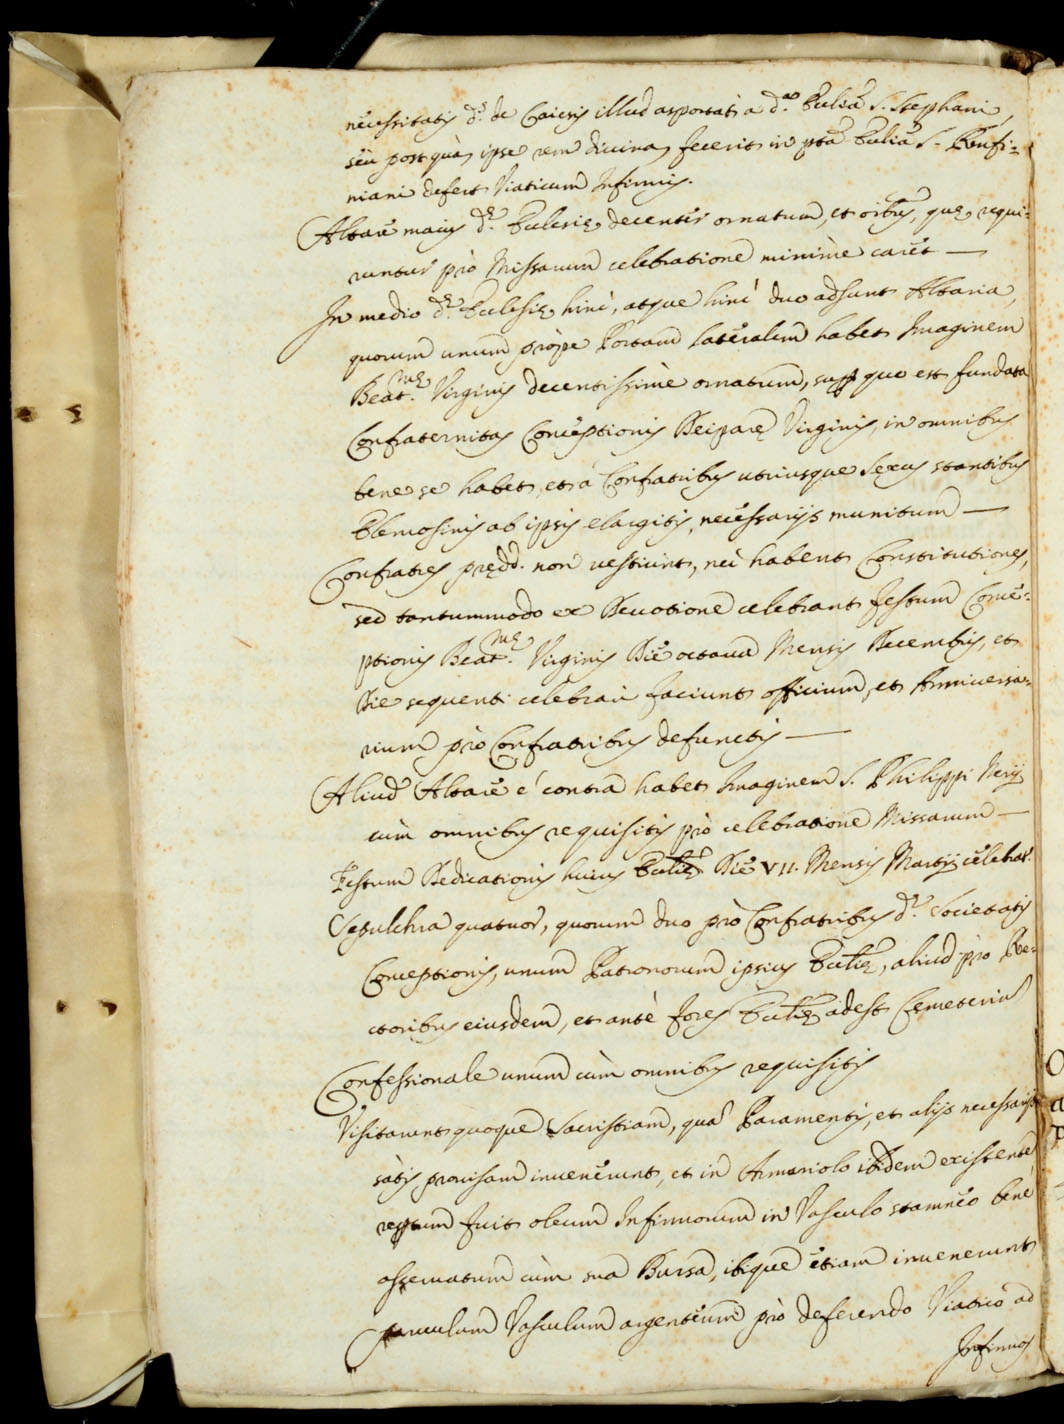 necessitatis d.s de Caiesis illud asportat à d.a Eccliâ S. Stephani,
seù postquàm ipse rem divinam fecerit in ptâ Eccliâ S. Rufi-
niani defert Viaticum Infirmis.
Altare maius d.ę Ecclesię decenter ornatum, et oibus, quę requi-
runtur prò Missarum celebratione minimè caret —
In medio d.ę Ecclesię hinc, atque hinc duo adsunt Altaria,
quorum unum propè Portam lateralem habet Imaginem
Beat.mę Virginis decentissimè ornatum, sup quo est fundata
Confraternitas Conceptionis Deiparę Virginis, in omnibus
bene se habet, et à Confratribus utriusque Sexus stantibus
Elemosinis ab ipsis elargitis, necessarijs munitum —
Confratres prędd. non vestiunt, nec habent Constitutiones,
sed tantummodo ex Devotione celebrant festum Conce-
ptionis Beat.mę Virginis Die octava Mensis Decembris, et
Die sequenti celebrari faciunt officium, et Anniversa-
rium prò Confratribus defunctis —
Aliud Altare è contra habet Imaginem S. Philippi Nerij
cùm omnibus requisitis prò celebratione Missarum —
Festum Dedicationis huius Ecclię Die VII. Mensis Martij celebrat.
Sepulchra quatuor, quorum duo prò Confratribus d.ę Societatis
Conceptionis, unum Patronorum ipsius Ecclię, aliud prò Re-
ctoribus eiusdem, et antè fores Ecclię adest Cemeterium
Confessionale unum cùm omnibus requisitis
Visitarunt quoque Sacristiam, quam Paramentis, et alijs necessarijs
satis provisam invenerunt, et in Armariolo ibidem existente
reptum fuit oleum Infirmorum in Vasculo stamneo bene
asservatum cùm sua Bursa, ibique etiam invenerunt
parvulum Vasculum argenteum prò deferendo Viatico ad
Infirmos